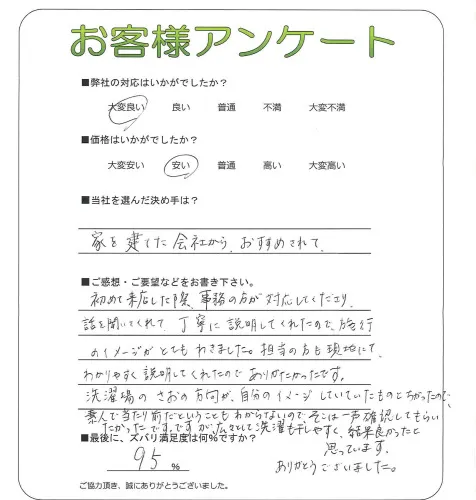 お客様アンケート
■弊社の対応はいかがでしたか?
大変良い 良い 普通 不満 大変不満
■価格はいかがでしたか?
大変安い 安い 普通 高い 大変高い
■当社を選んだ決め手は?
家を建てた会社から、おすすめされて、
■ご感想・ご要望などをお書き下さい。
初めて来店した際、事務の方が対応してくださり、
話を聞いてくれて、丁寧に説明してくれたので、施行
のイメージがとてもわきました。担当の方も現地にて、
わかりやすく説明してくれたのでありがたかったです。
洗濯場のさおの方向が、自分のイメージしていたものとちがったので、
素人で当たり前だということもわからないので、そこは一声確認してもらい
たかったです。ですが、広々として洗濯も干しやすく、結果良かったと
思っています。
ありがとうございました。
■最後に、ズバリ満足度は何%ですか?
95 %
ご協力頂き、誠にありがとうございました。